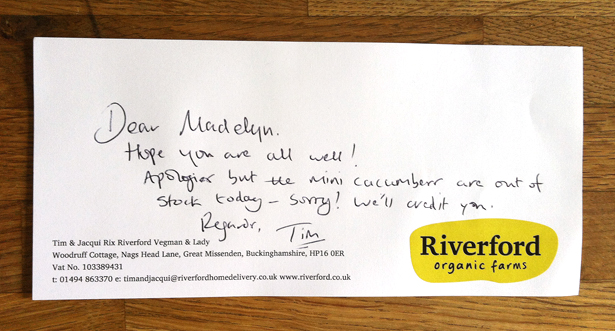 Dear Madelyn.
Hope you are all well!
Apologies but the mini cucumbers are out of
stock today - sorry! We'll credit you.
Regards, Tim
Tim & Jacqui Rix Riverford Vegman & Lady
Woodruff Cottage, Nags Head Lane, Great Missenden, Buckinghamshire, HP16 0ER
Vat No. 103389431
t: 01494 863370 e: timandjacqui@riverfordhomedelivery.co.uk www.riverford.co.uk
Riverford
organic farms